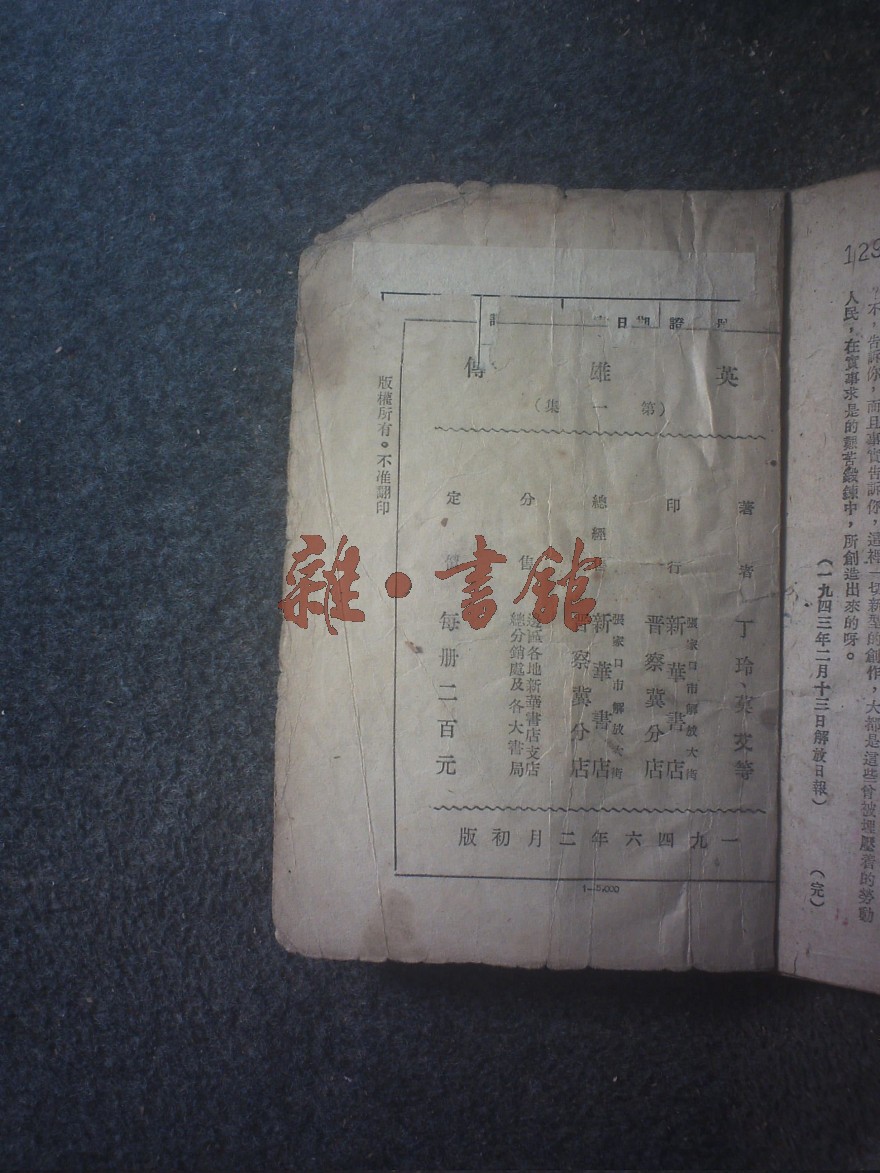 129
不，告訴你，而且事實告訴你，這裡一切新型的創作，大都是這些曾被埋壓着的勞動
人民，在實事求是的艱苦鍛鍊中，所創造出來的呀。
（一九四三年二月十三日解放日報）
（完）
英雄傳
（第一集）
著者 丁玲、莫艾等
印行 張家口市解放大街 新華書店晋察冀分店
總經售 張家口市解放大街 新華書店晋察冀分店
分售 邊區各地新華書店支店
總分銷處及各大書局
定價 每册二百元
一九四六年二月初版
1—5,000
版權所有。不准翻印
雜·書館